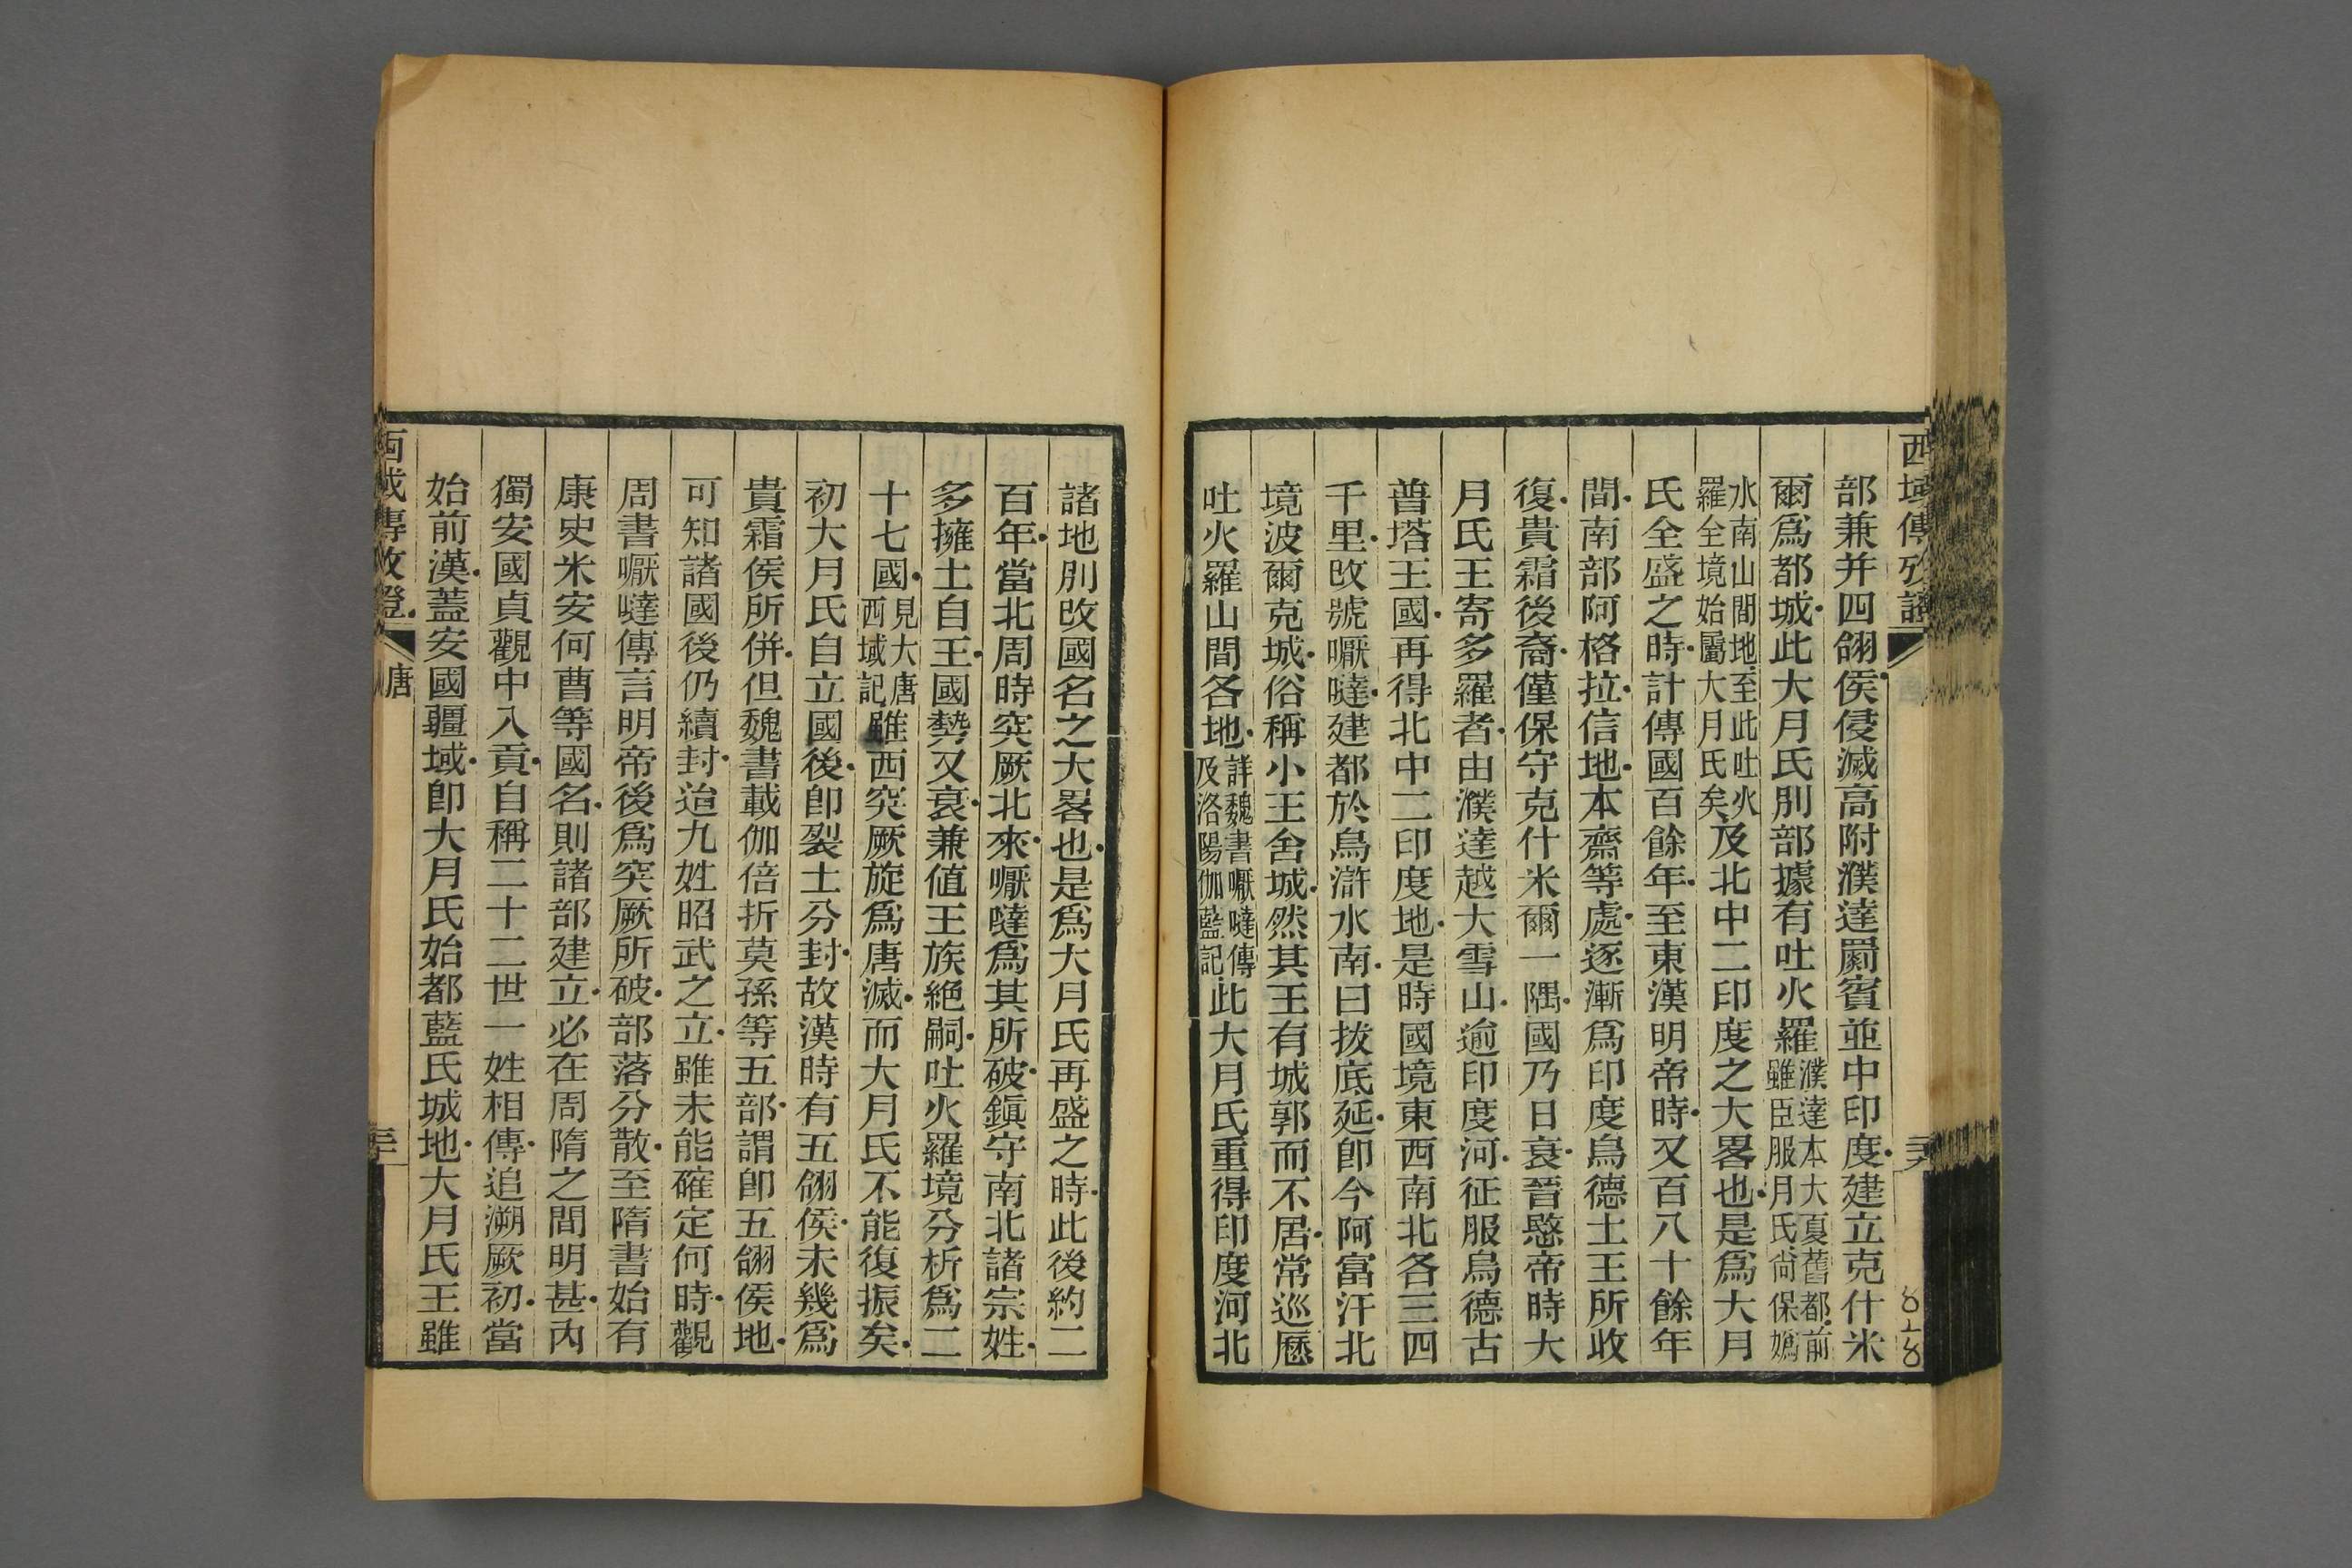 西域傳攷證
部兼并四翎侯侵滅高附濮達罽賓並中印度建立克什米
爾爲都城此大月氏別部據有吐火羅濮達本大夏舊都前雖臣服月氏尙保嬀
水南山間地至此吐火羅全境始屬大月氏矣及北中二印度之大畧也是爲大月
氏全盛之時計傳國百餘年至東漢明帝時又百八十餘年
間南部阿格拉信地本齋等處逐漸爲印度烏德土王所收
復貴霜後裔僅保守克什米爾一隅國乃日衰晉愍帝時大
月氏王寄多羅者由濮達越大雪山逾印度河征服烏德古
普塔王國再得北中二印度地是時國境東西南北各三四
千里改號嚈噠建都於烏滸水南曰拔底延卽今阿富汗北
境波爾克城俗稱小王舍城然其王有城郭而不居常巡歷
吐火羅山間各地詳魏書嚈噠傳及洛陽伽藍記此大月氏重得印度河北
諸地別改國名之大畧也是爲大月氏再盛之時此後約二
百年當北周時突厥北來嚈噠爲其所破鎭守南北諸宗姓
多擁土自王國勢又衰兼值王族絶嗣吐火羅境分析爲二
十七國見大唐西域記雖西突厥旋爲唐滅而大月氏不能復振矣
初大月氏自立國後卽裂土分封故漢時有五翎侯未幾爲
貴霜侯所併但魏書載伽倍折莫孫等五部謂卽五翎侯地
可知諸國後仍續封迨九姓昭武之立雖未能確定何時觀
周書嚈噠傳言明帝後爲突厥所破部落分散至隋書始有
康史米安何曹等國名則諸部建立必在周隋之間明甚內
獨安國貞觀中入貢自稱二十二世一姓相傳追溯厥初當
始前漢蓋安國疆域卽大月氏始都藍氏城地大月氏王雖
西域傳攷證
唐